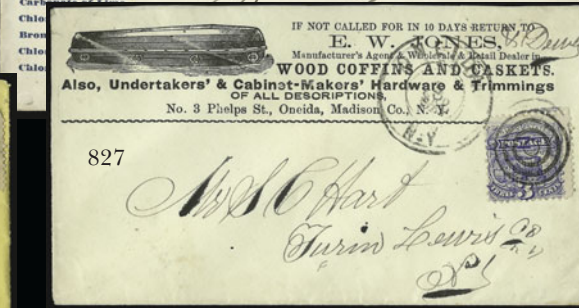 Chlo
Bron
Chlo
Chlo
IF NOT CALLED FOR IN 10 DAYS RETURN TO
E. W. JONES,
Manufacturer's Agent & Wholesale & Retail Dealer in
WOOD COFFINS AND CASKETS.
Also, Undertakers' & Cabinet-Makers' Hardware & Trimmings
OF ALL DESCRIPTIONS,
No. 3 Phelps St., Oneida, Madison Co., N. Y.
827
POSTAGE
3
Mr S C Hart
Turin Lewis Co
N Y